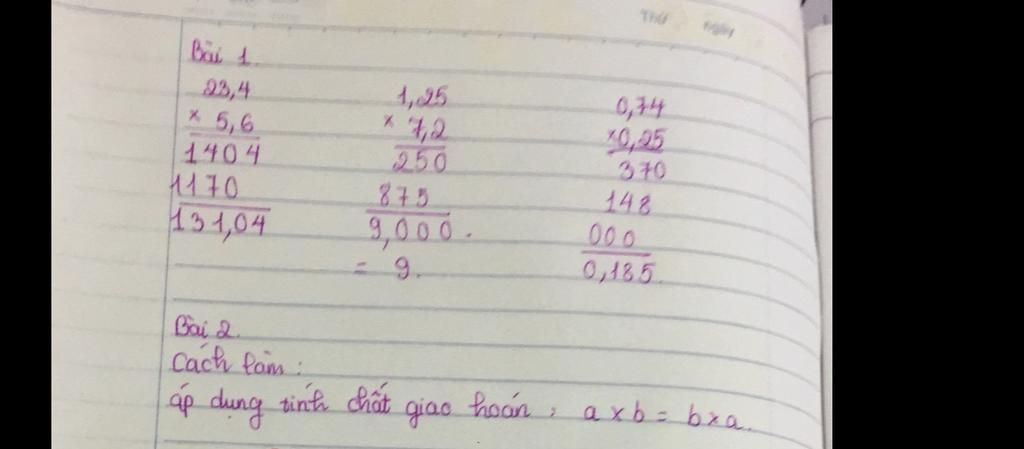 Thứ ngày
Bài 1.
23,4
× 5,6
1404
1170
131,04
1,25
× 7,2
250
875
9,000.
= 9.
0,74
×0,25
370
148
000
0,185
Bài 2.
Cách làm:
áp dụng tính chất giao hoán, a × b = b × a.